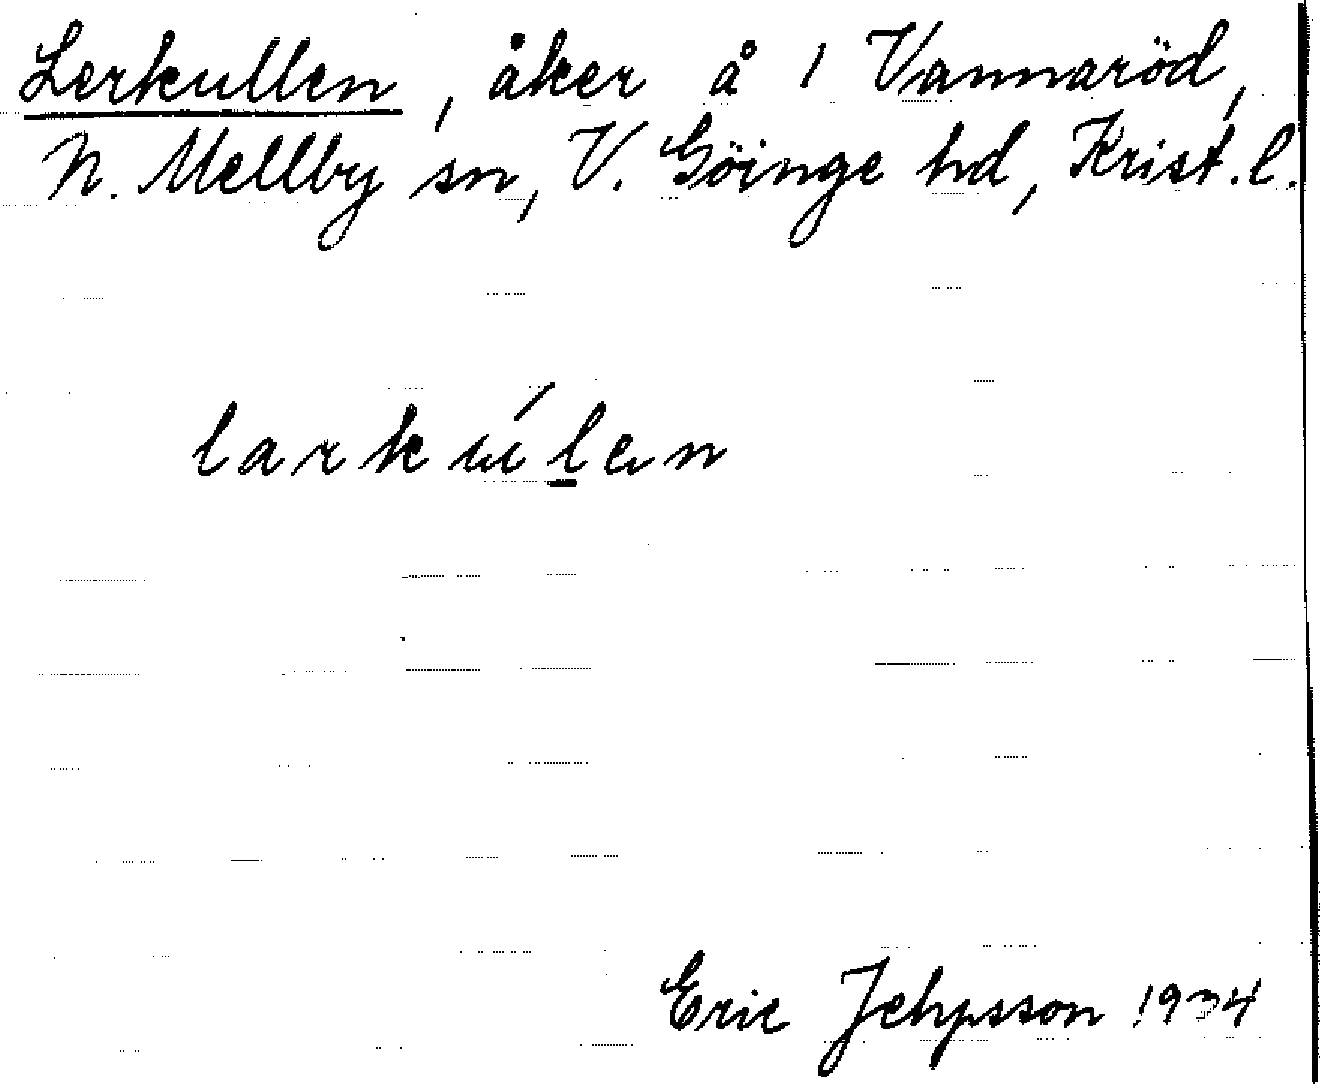 Lerkullen, åker å 1 Vannaröd,
N. Mellby sn, V. Göinge hd, Krist. l.
larkúlen
Eric Jehpsson 1934